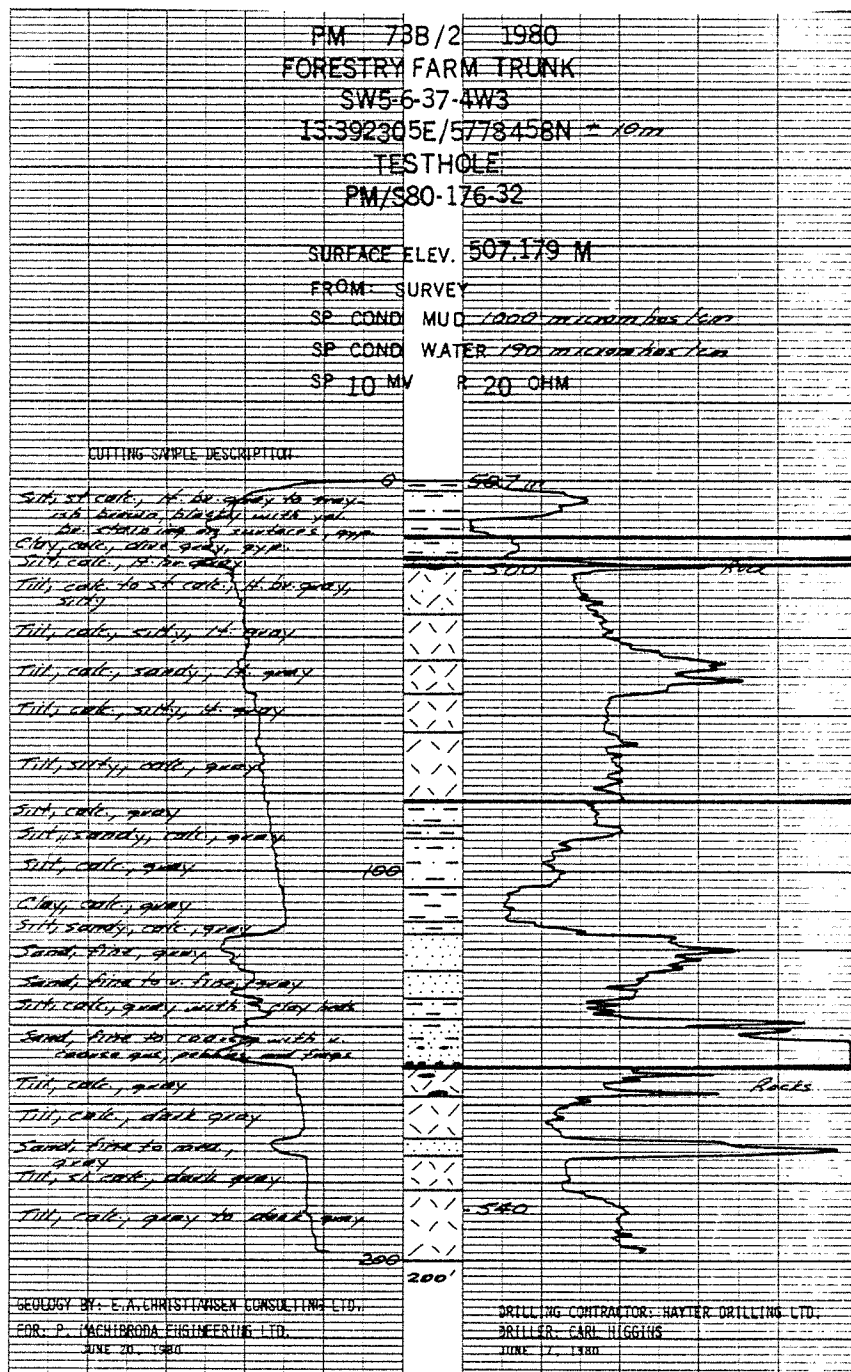 PM 73B/2 1980
FORESTRY FARM TRUNK
SW5-6-37-4W3
13:392305E/5778458N ± 10m
TESTHOLE
PM/S80-176-32
SURFACE ELEV. 507.179 M
FROM: SURVEY
SP COND MUD 1000 micromhos/cm
SP COND WATER 190 micromhos/cm
SP 10 MV R 20 OHM
CUTTING SAMPLE DESCRIPTION
0 507 m
Silt, st calc, lt. br. gray to gray-
ish brown, blocky with yel.
br. staining on surfaces, gyp.
Clay, calc, olive gray, gyp.
Silt, calc, lt br. gray
500 Rock
Till, calc to st calc, lt. br. gray,
silty
Till, calc, silty, lt. gray
Till, calc, sandy, lt. gray
Till, calc, silty, lt. gray
Till, silty, calc, gray
Silt, calc, gray
Silt, sandy, calc, gray
Silt, calc, gray 100
Clay, calc, gray
Silt, sandy, calc, gray
Sand, fine, gray
Sand, fine to v. fine, gray
Silt, calc, gray with clay beds
Sand, fine to coarse, with v.
coarse pebbles and frags
Till, calc, gray Rocks
Till, calc, dark gray
Sand, fine to med,
gray
Till, st calc, dark gray
Till, calc, gray to dark gray 540
200
200'
GEOLOGY BY: E.A.CHRISTIANSEN CONSULTING LTD.
FOR: P. MACHIBRODA ENGINEERING LTD.
JUNE 20, 1980
DRILLING CONTRACTOR: HAYTER DRILLING LTD.
DRILLER: CARL HIGGINS
JUNE 17, 1980